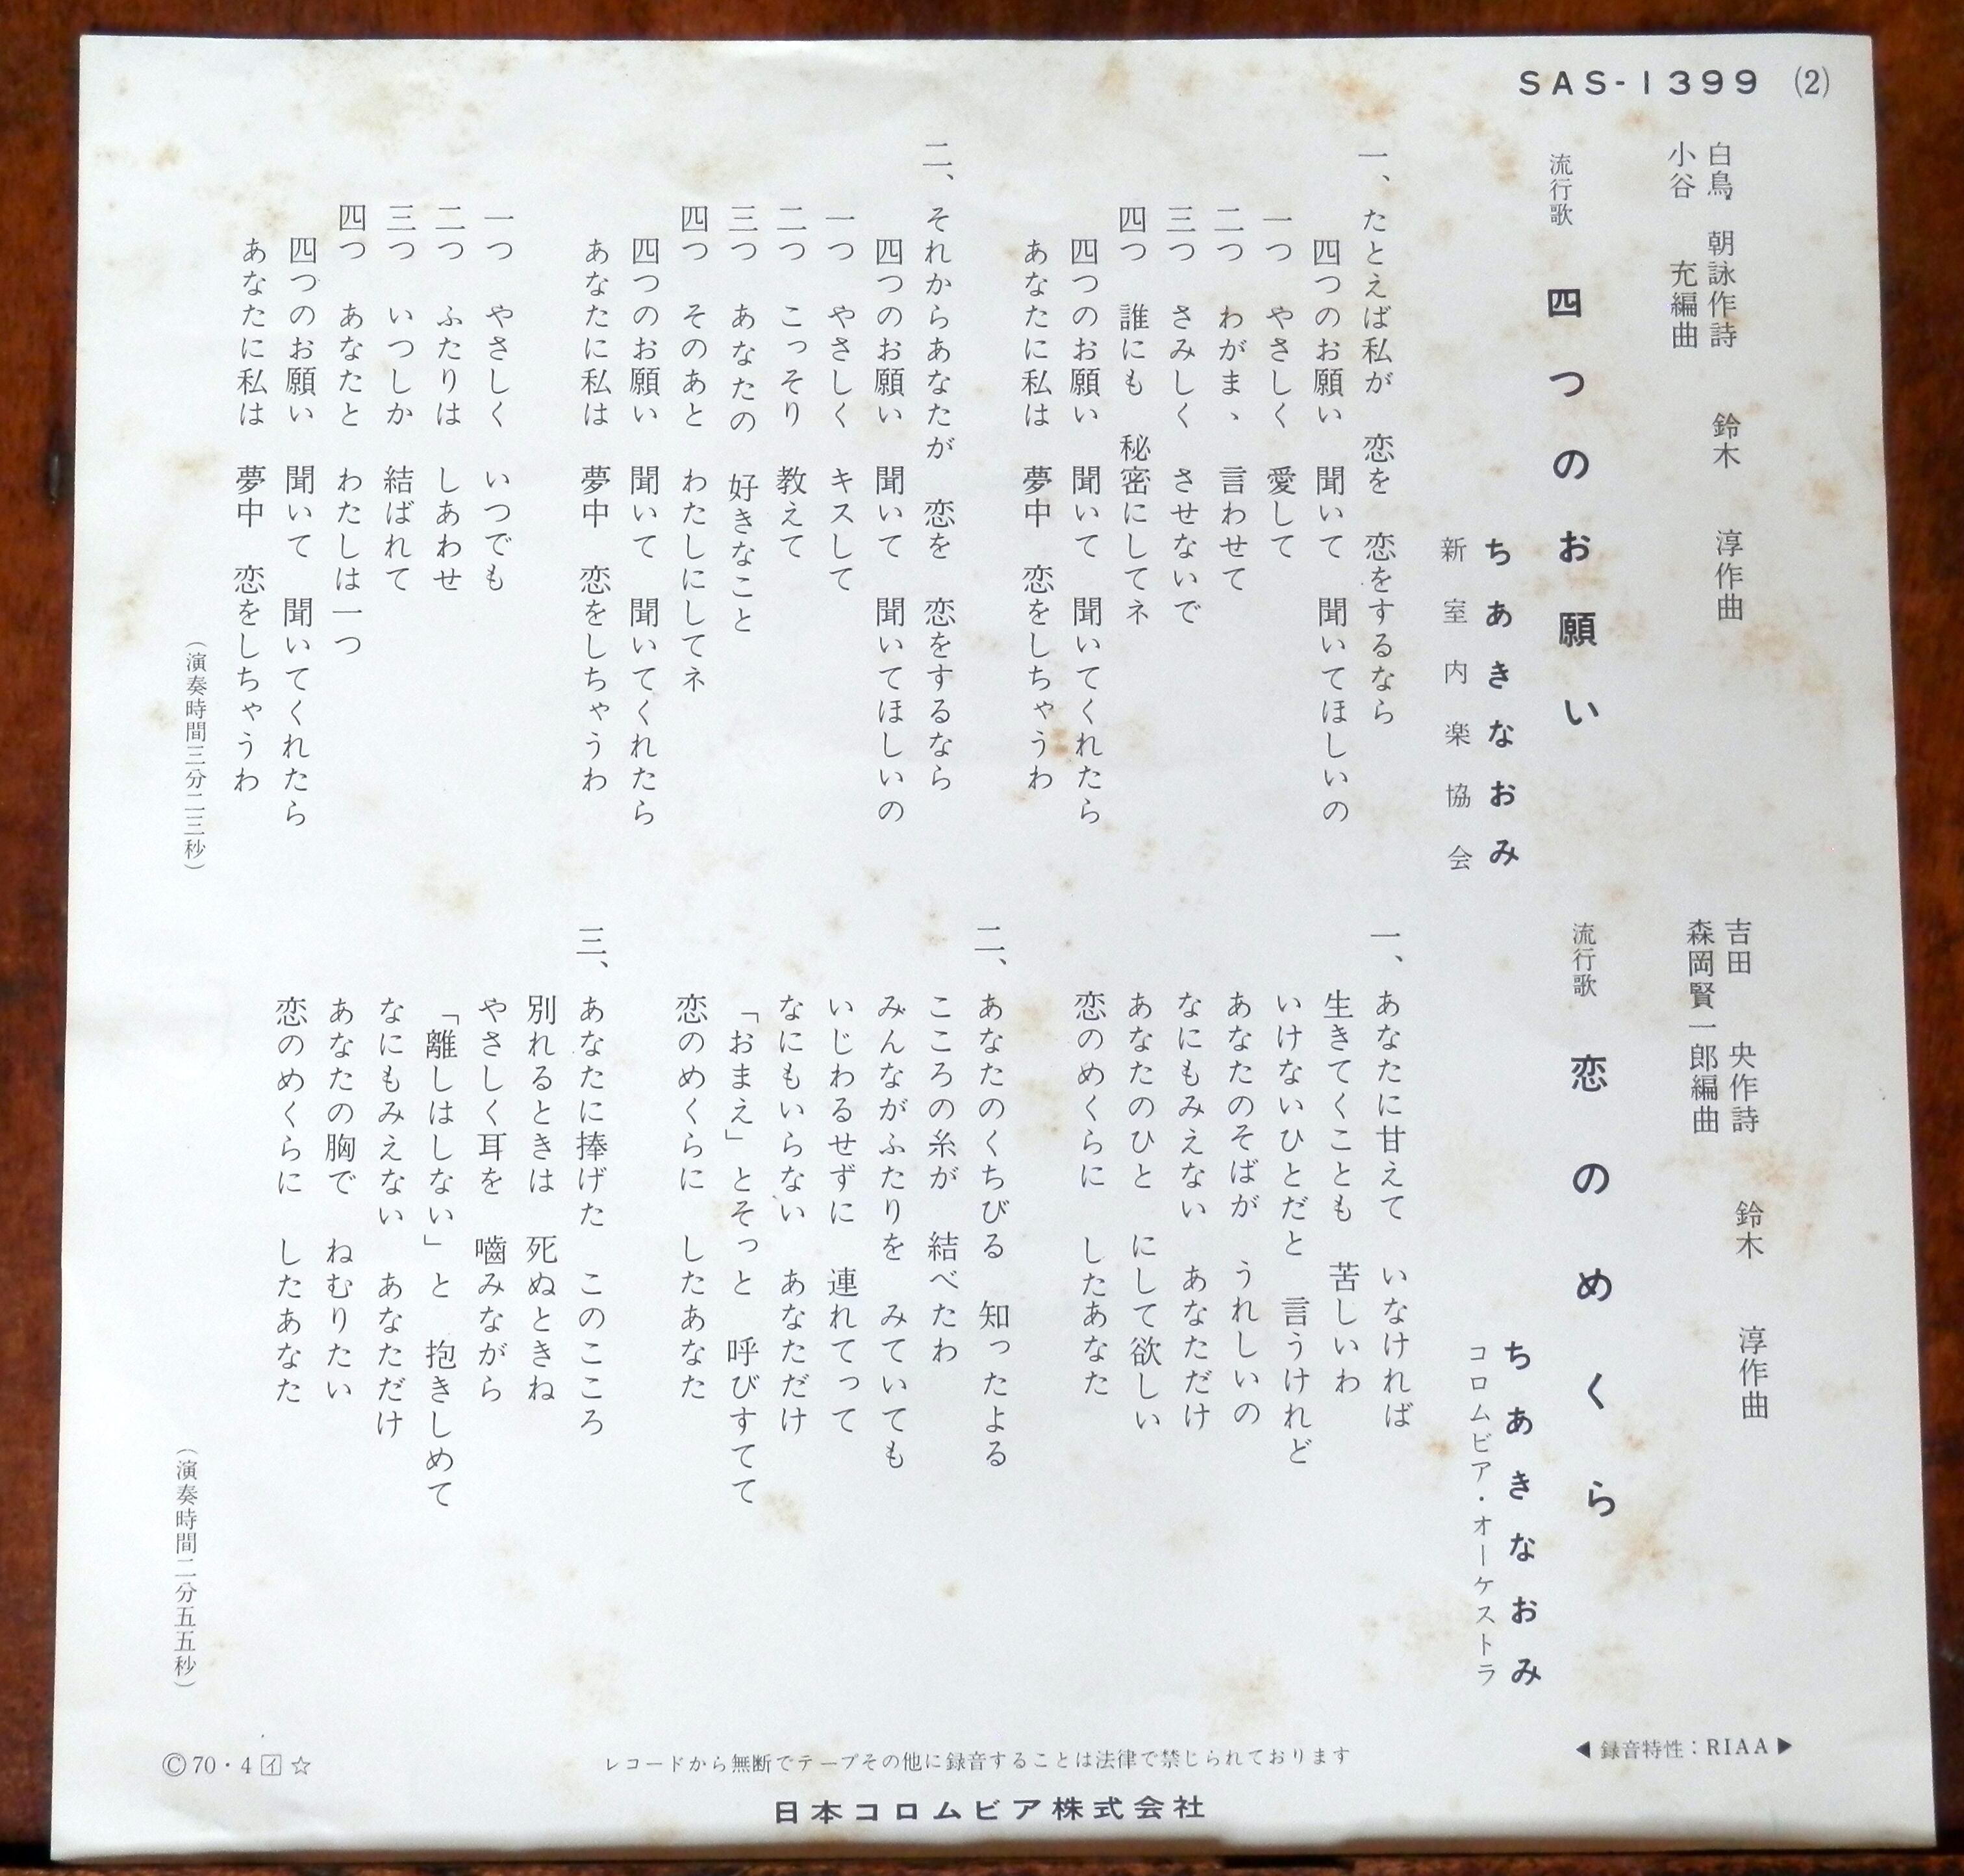 SAS-1399 (2)
白鳥 朝詠作詩 鈴木 淳作曲
小谷 充編曲
流行歌 四つのお願い
ちあきなおみ
新室内楽協会
一、たとえば私が 恋を 恋をするなら
四つのお願い 聞いて 聞いてほしいの
一つ やさしく 愛して
二つ わがまゝ 言わせて
三つ さみしく させないで
四つ 誰にも 秘密にしてネ
四つのお願い 聞いて 聞いてくれたら
あなたに私は 夢中 恋をしちゃうわ
二、それからあなたが 恋を 恋をするなら
四つのお願い 聞いて 聞いてほしいの
一つ やさしく キスして
二つ こっそり 教えて
三つ あなたの 好きなこと
四つ そのあと わたしにしてネ
四つのお願い 聞いて 聞いてくれたら
あなたに私は 夢中 恋をしちゃうわ
一つ やさしく いつでも
二つ ふたりは しあわせ
三つ いつしか 結ばれて
四つ あなたと わたしは一つ
四つのお願い 聞いて 聞いてくれたら
あなたに私は 夢中 恋をしちゃうわ
（演奏時間三分二三秒）
吉田 央作詩 鈴木 淳作曲
森岡賢一郎編曲
流行歌 恋のめくら
ちあきなおみ
コロムビア・オーケストラ
一、あなたに甘えて いなければ
生きてくことも 苦しいわ
いけないひとだと 言うけれど
あなたのそばが うれしいの
なにもみえない あなただけ
あなたのひと にして欲しい
恋のめくらに したあなた
二、あなたのくちびる 知ったよる
こころの糸が 結べたわ
みんながふたりを みていても
いじわるせずに 連れてって
なにもいらない あなただけ
「おまえ」とそっと 呼びすてて
恋のめくらに したあなた
三、あなたに捧げた このこころ
別れるときは 死ぬときね
やさしく耳を 嚙みながら
「離しはしない」と 抱きしめて
なにもみえない あなただけ
あなたの胸で ねむりたい
恋のめくらに したあなた
（演奏時間二分五五秒）
◀録音特性：RIAA▶
レコードから無断でテープその他に録音することは法律で禁じられております
Ⓒ70・4 イ ☆
日本コロムビア株式会社